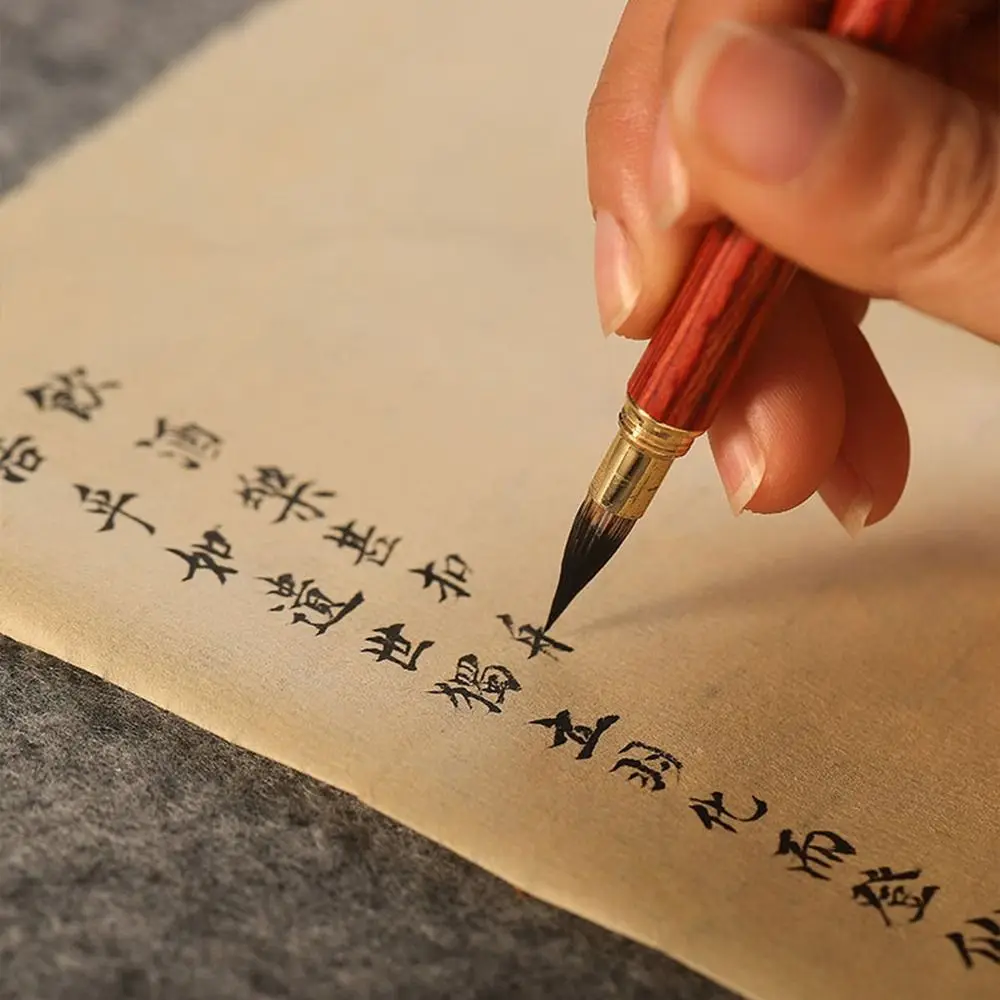 乎如遺世獨立羽化而登
飲酒樂甚扣舟